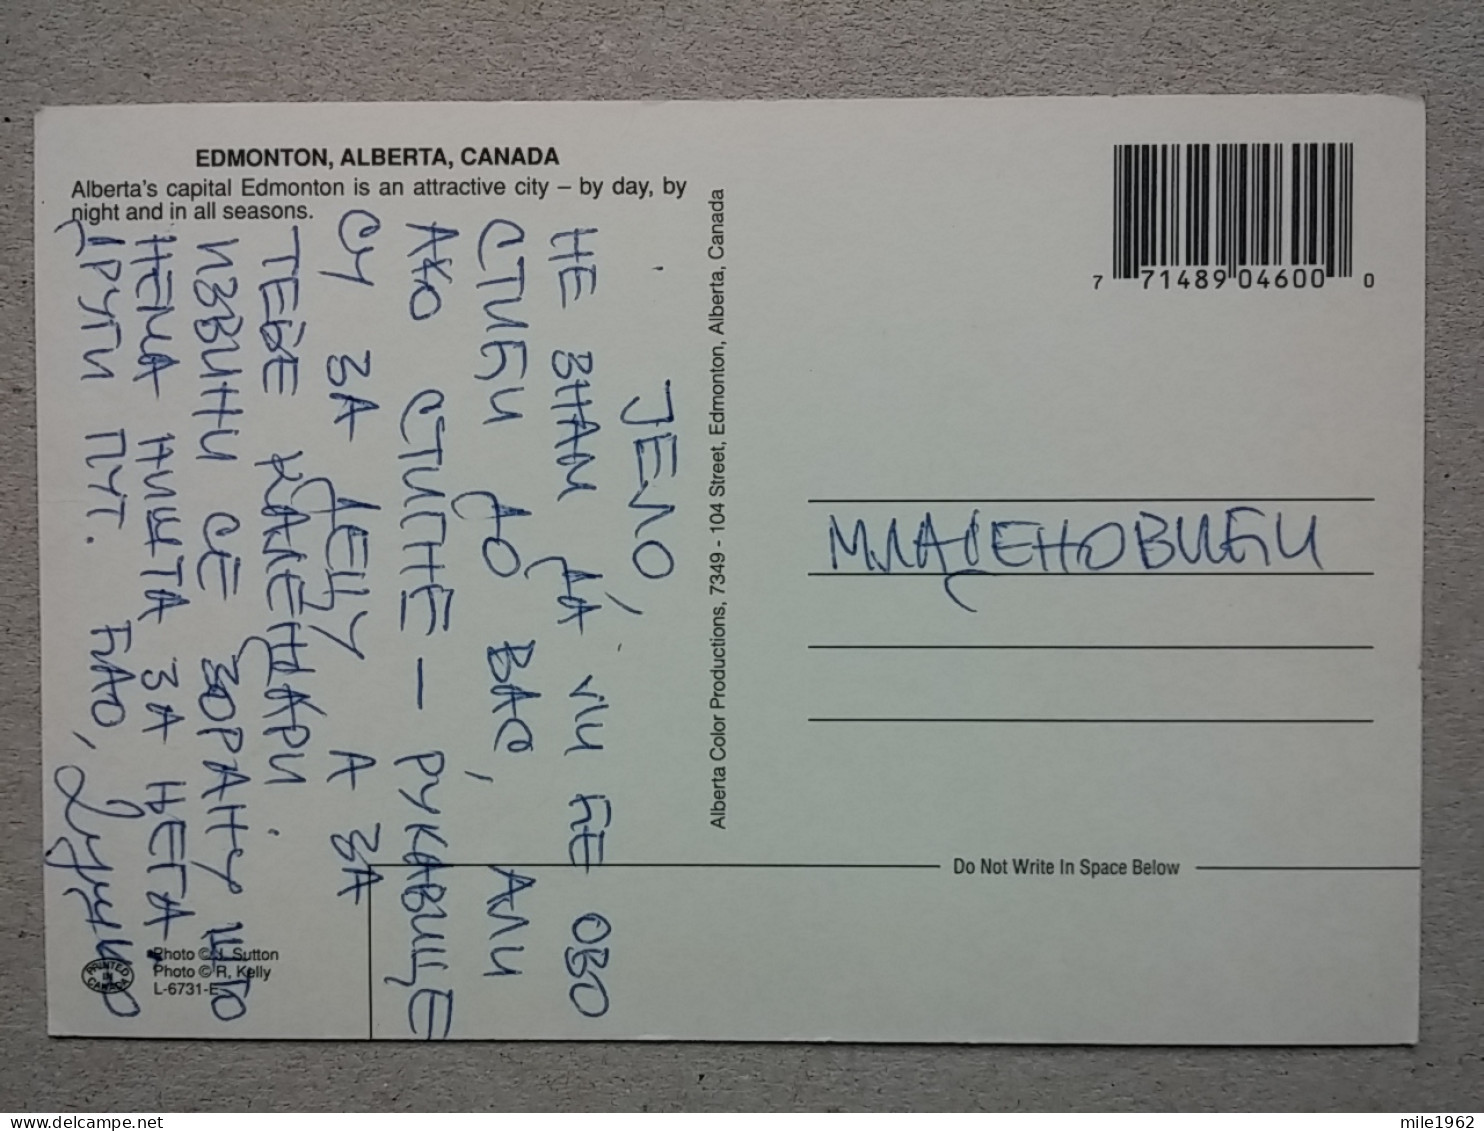 EDMONTON, ALBERTA, CANADA
Alberta's capital Edmonton is an attractive city – by day, by
night and in all seasons.
ЈЕЛО,
НЕ ЗНАМ ДА ЛИ ЋЕ ОВО
СТИЋИ ДО ВАС, АЛИ
АКО СТИГНЕ — РУКАВИЦЕ
СУ ЗА ДЕЦУ А ЗА
ТЕБЕ КАЛЕНДАРИ.
ИЗВИНИ СЕ ЗОРАНУ ШТО
НЕМА НИШТА ЗА ЊЕГА.
ДРУГИ ПУТ. ЋАО,
Photo © J. Sutton
Photo © R. Kelly
L-6731-E
PRINTED IN CANADA
Alberta Color Productions, 7349 - 104 Street, Edmonton, Alberta, Canada
7 71489 04600 0
МЛАДЕНОВИЋИ
Do Not Write In Space Below
mile1962